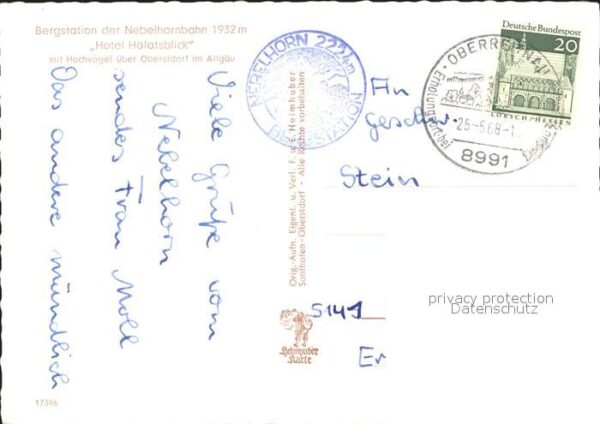 Bergstation der Nebelhornbahn 1932 m
„Hotel Höfatsblick"
mit Hochvogel über Oberstdorf im Allgäu
Viele Grüße vom
Nebelhorn
sendet Frau Moll
Das andere mündlich
NEBELHORN 2224m
BERGSTATION
Orig.-Aufn. Eigent. u. Verl. F. u. E. Heimhuber
Sonthofen-Oberstdorf · Alle Rechte vorbehalten
Heimhuber
Karte
17396
Deutsche Bundespost
20
LORSCH/HESSEN
OBERREITNAU
8991
An
Geschw.
Stein
5141
Er
privacy protection
Datenschutz